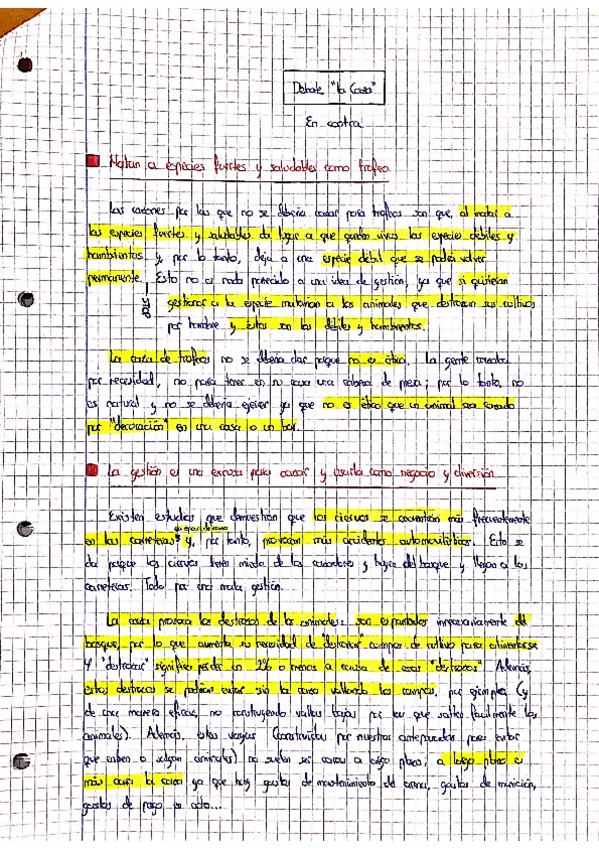 Debate "la Caza"
En contra
Matan a especies fuertes y saludables como trofeo.
Las razones por las que no se debería cazar para trofeos son que, al matar a
las especies fuertes y saludables da lugar a que queden vivas las especies débiles y
hambrientas y, por lo tanto, deja a una especie débil que se podría volver
permanente. Esto no es nada parecido a una idea de gestión, ya que si quisieran
gestionar a la especie matarían a los animales que destrozan sus cultivos
por hambre y éstos son los débiles y hambrientos.
La caza de trofeos no se debería dar porque no es ético. La gente
por necesidad, no para tener en su casa una cabeza de pieza; por lo tanto, no
es natural y no se debería ejercer ya que no es ético que un animal sea cazado
por "decoración" en una casa o un bar.
La gestión es una excusa para cazar y usarla como negocio y diversión.
Existen estudios que demuestran que los ciervos se encuentran más frecuentemente
en las carreteras y, por tanto, provocan más accidentes automovilísticos. Esto se
da porque los ciervos tienen miedo de los cazadores y huyen del bosque y llegan a las
carreteras. Todo por una mala gestión.
La caza provoca los destrozos de los animales: son espantados innecesariamente del
bosque, por lo que aumenta su necesidad de "destrozar" campos de cultivo para alimentarse
Y "destrozar" significa perder un 2% o menos a causa de esos "destrozos". Además,
estos destrozos se podrían evitar sin la caza vallando los campos, por ejemplo (y
de una manera eficaz, no construyendo vallas bajas por las que salten fácilmente los
animales). Además, estas vallas (construidas por nuestros antepasados para evitar
que entren o salgan animales) no suelen ser caras a largo plazo; a largo plazo es
más cara la caza ya que hay gastos de mantenimiento del arma, gastos de munición,
gastos de pago de coto...